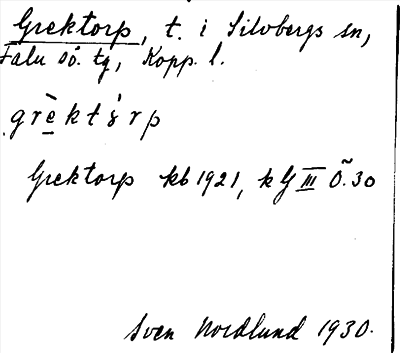 Grektorp, t. i Silvbergs sn,
Falu sö. tg, Kopp. l.
grèktrp
Grektorp kb 1921, kG III Ö. 30
Sven Nordlund 1930.